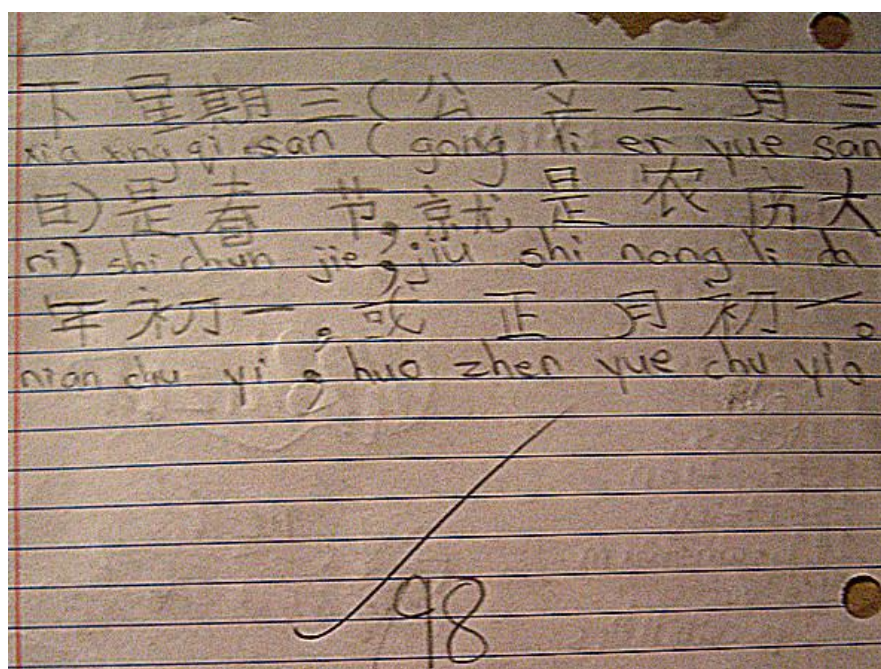 下 星 期 三 ( 公 立 二 月 三
xia xing qi san ( gong li er yue san
日) 是 春 节, 就 是 农 历 大
ri) shi chun jie, jiu shi nong li da
年 初 一 , 或 正 月 初 一。
nian chu yi , huo zhen yue chu yi。
98